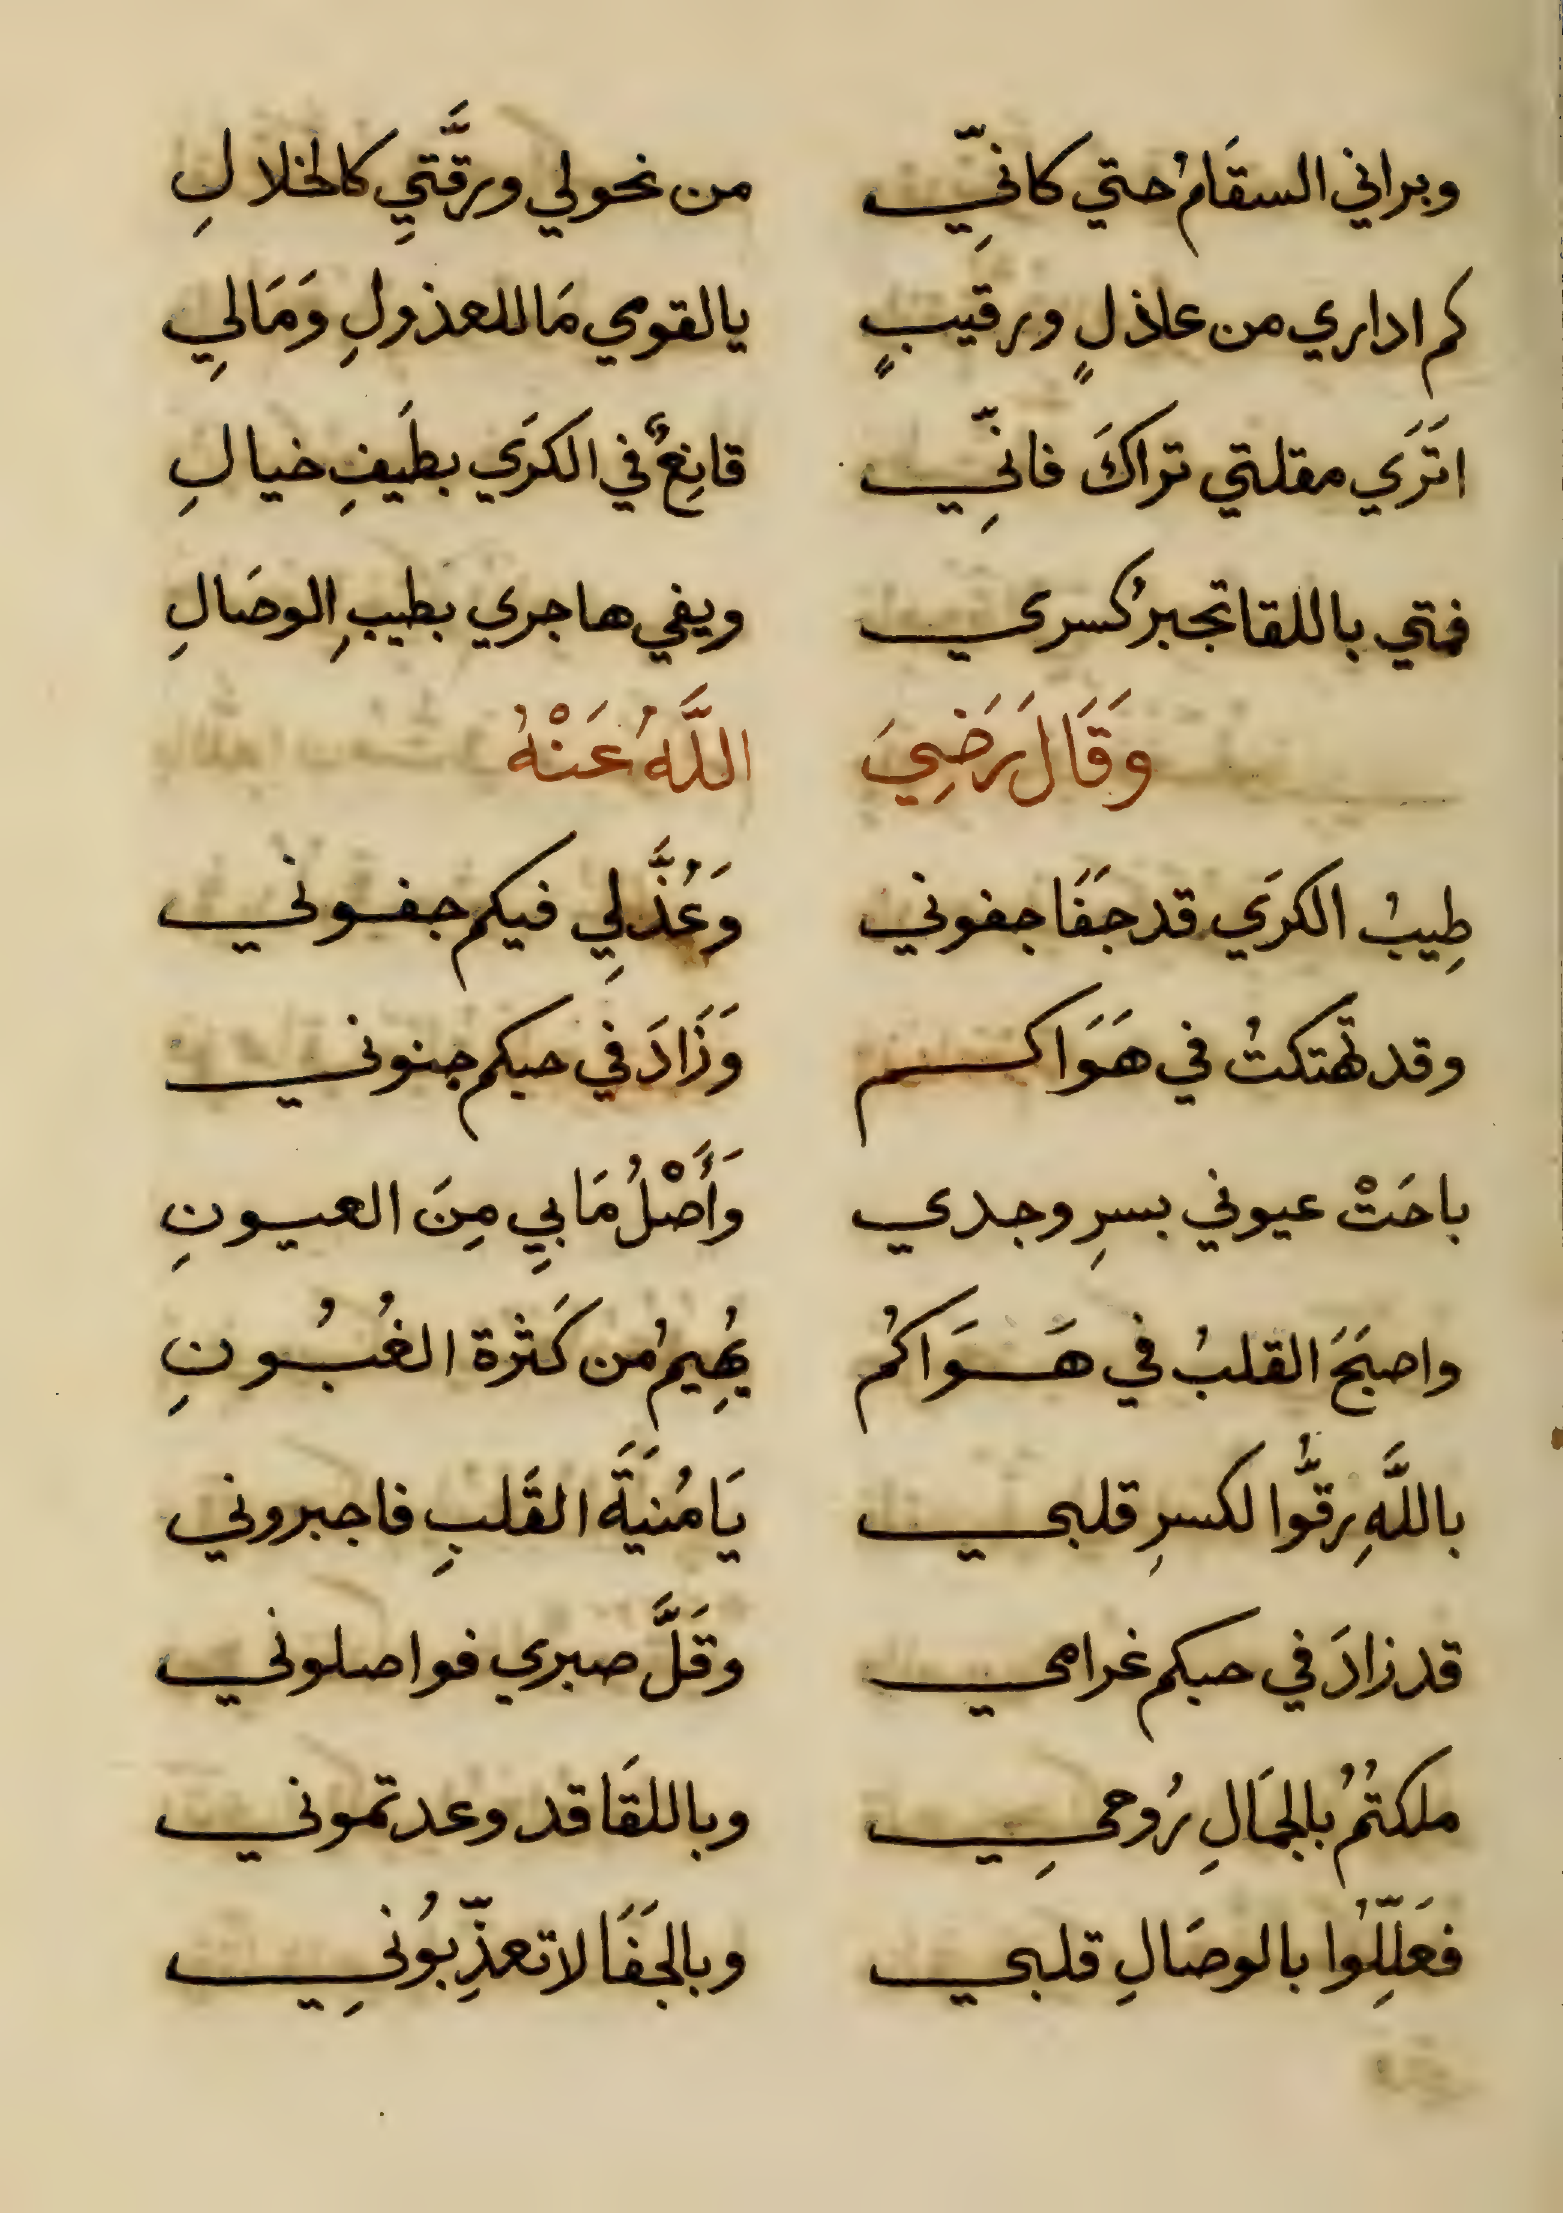 وبراني السقَامُ حتي كانِّي من نحولي ورقَّتيِ كالخلالِ
كم اداري من عاذلٍ ورقيبٍ يالقومي مَاللعذولِ وَمَاليِ
اتَرَي مقلتي تراكَ فانِّي قانِعٌ في الكرَي بطَيفِ خيالِ
فمتي باللقا تجبرُ كسري ويفي هاجري بطيبِ الوصَالِ
وَقَالَ رَضِيَ اللَّهُ عَنْهُ
طِيبُ الكرَي قد جَفَا جفوني وَعُذَّلِي فيكم جفوني
وقد تهَتكتُ في هَوَاكم وَزَادَ في حبكم جنوني
باحَتْ عيوني بسرِ وجدي وَأَصْلُ مَا بيِ مِنَ العيونِ
واصبَحَ القلبُ في هَوَاكُم يُهِيمُ من كَثرة الغُبُونِ
باللَّهِ رقُّوا لكسرِ قلبي يَا مُنيَةَ القَلبِ فاجبروني
قد زادَ في حبكم غرامي وقَلَّ صبري فواصلوني
ملكتُمُ بالجمَالِ رُوحيِ وباللقَا قد وعدتموني
فعَلِّلُوا بالوصَالِ قلبي وبالجَفَا لاتعذِّبُونيِ